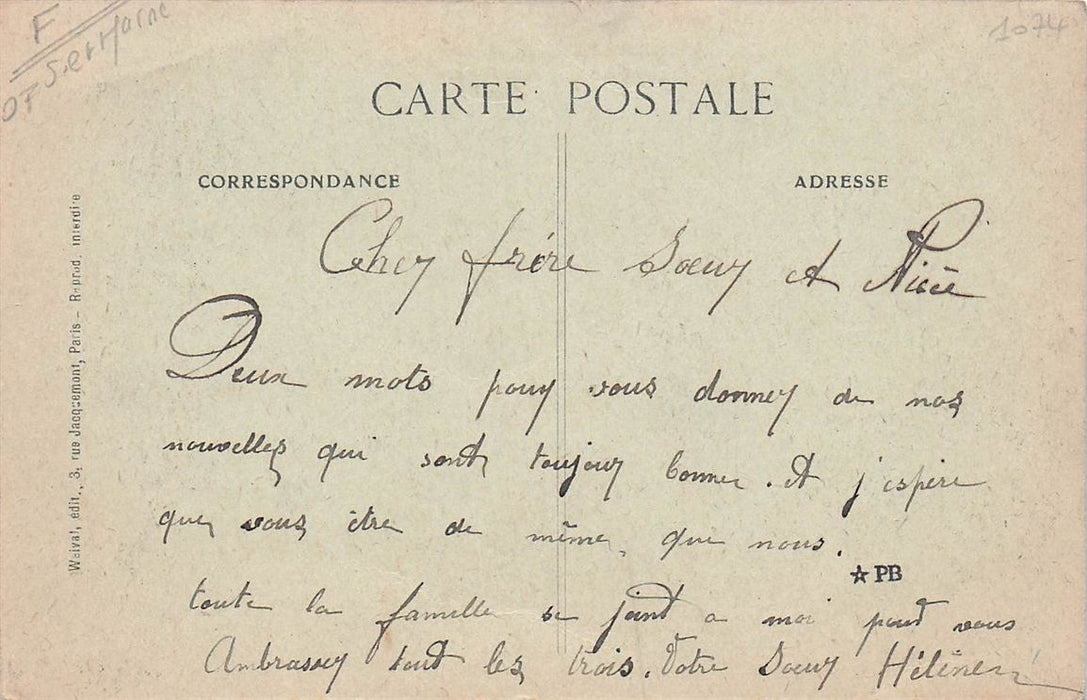 F
S et Marne
1074
CARTE POSTALE
CORRESPONDANCE
ADRESSE
Cher frère Soeur et Nièce
Deux mots pour vous donner de nos
nouvelles qui sont toujour bonne. et j'espère
que vous être de même, que nous.
PB
toute la famille se joint a moi pour vous
Ambrasser tout les trois. Votre Soeur Hélène
édit., 3, rue Jacquemont, Paris - Reprod. interdite